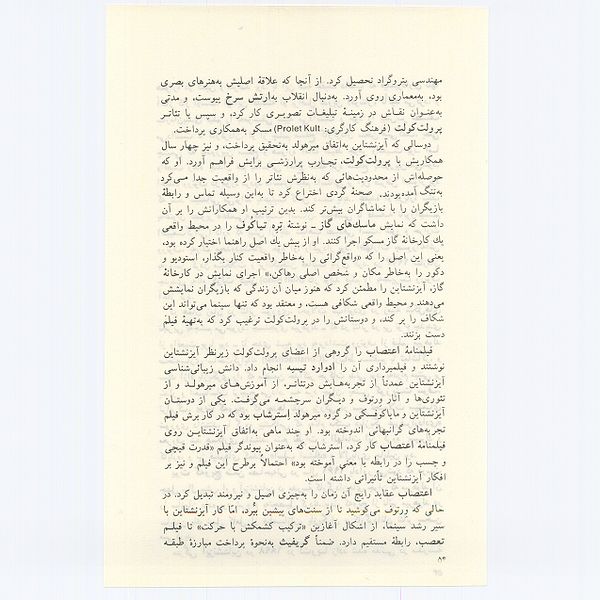 مهندسی پتروگراد تحصیل کرد. از آنجا که علاقهٔ اصلیش به‌هنرهای بصری
بود، به‌معماری روی آورد. به‌دنبال انقلاب به‌ارتش سرخ پیوست، و مدتی
به‌عنوان نقاش در زمینهٔ تبلیغات تصویری کار کرد، و سپس با تئاتر
پرولت‌کولت (فرهنگ کارگری: Prolet Kult) مسکو به‌همکاری پرداخت.
دوسالی که آیزنشتاین به‌اتفاق میرهولد به‌تحقیق پرداخت، و نیز چهار سال
همکاریش با پرولت‌کولت، تجارب پرارزشی برایش فراهم آورد. او که
حوصله‌اش از محدودیت‌هائی که به‌نظرش تئاتر را از واقعیت جدا می‌کرد
به‌تنگ آمده‌بود، صحنهٔ گردی اختراع کرد تا به‌این وسیله تماس و رابطهٔ
بازیگران را با تماشاگران بیش‌تر کند. بدین ترتیب او همکارانش را بر آن
داشت که نمایش ماسك‌های گاز ــ نوشتهٔ تره تیاکوف را در محیط واقعی
یك کارخانهٔ گاز مسکو اجرا کنند. او از پیش یك اصل راهنما اختیار کرده بود،
یعنی این اصل را که «واقع‌گرائی را به‌خاطر واقعیت کنار بگذار، استودیو و
دکور را به‌خاطر مکان و شخص اصلی رهاکن.» اجرای نمایش در کارخانهٔ
گاز، آیزنشتاین را مطمئن کرد که هنوز میان آن زندگی که بازیگران نمایشش
می‌دهند و محیط واقعی شکافی هست، و معتقد بود که تنها سینما می‌تواند این
شکاف را پر کند، و دوستانش را در پرولت‌کولت ترغیب کرد که به‌تهیهٔ فیلم
دست بزنند.
فیلمنامهٔ اعتصاب را گروهی از اعضای پرولت‌کولت زیرنظر آیزنشتاین
نوشتند و فیلمبرداری آن را ادوارد تیسه انجام داد. دانش زیبائی‌شناسی
آیزنشتاین عمدتاً از تجربه‌هایش درتئاتر، از آموزش‌های میرهولد و از
تئوری‌ها و آثار ورتوف و دیگران سرچشمه می‌گرفت. یکی از دوستان
آیزنشتاین و مایاکوفسکی در گروه میرهولد اِسترشاب بود که در کار برش فیلم
تجربه‌های گرانبهائی اندوخته بود. او چند ماهی به‌اتفاق آیزنشتاین روی
فیلمنامهٔ اعتصاب کار کرد. استرشاب که به‌عنوان پیوندگر فیلم «قدرت قیچی
و چسب را در رابطه با معنی آموخته بود» احتمالاً برطرح این فیلم و نیز بر
افکار آیزنشتاین تأثیراتی داشته است.
اعتصاب عقاید رایج آن زمان را به‌چیزی اصیل و نیرومند تبدیل کرد. در
حالی که ورتوف می‌کوشید تا از سنت‌های پیشین ببُرد، امّا کار آیزنشتاین با
سیر رشد سینما، از اشکال آغازین «ترکیب کشمکش با حرکت» تا فیلم
تعصب، رابطهٔ مستقیم دارد. ضمناً گریفیث به‌نحوهٔ پرداخت مبارزهٔ طبقه